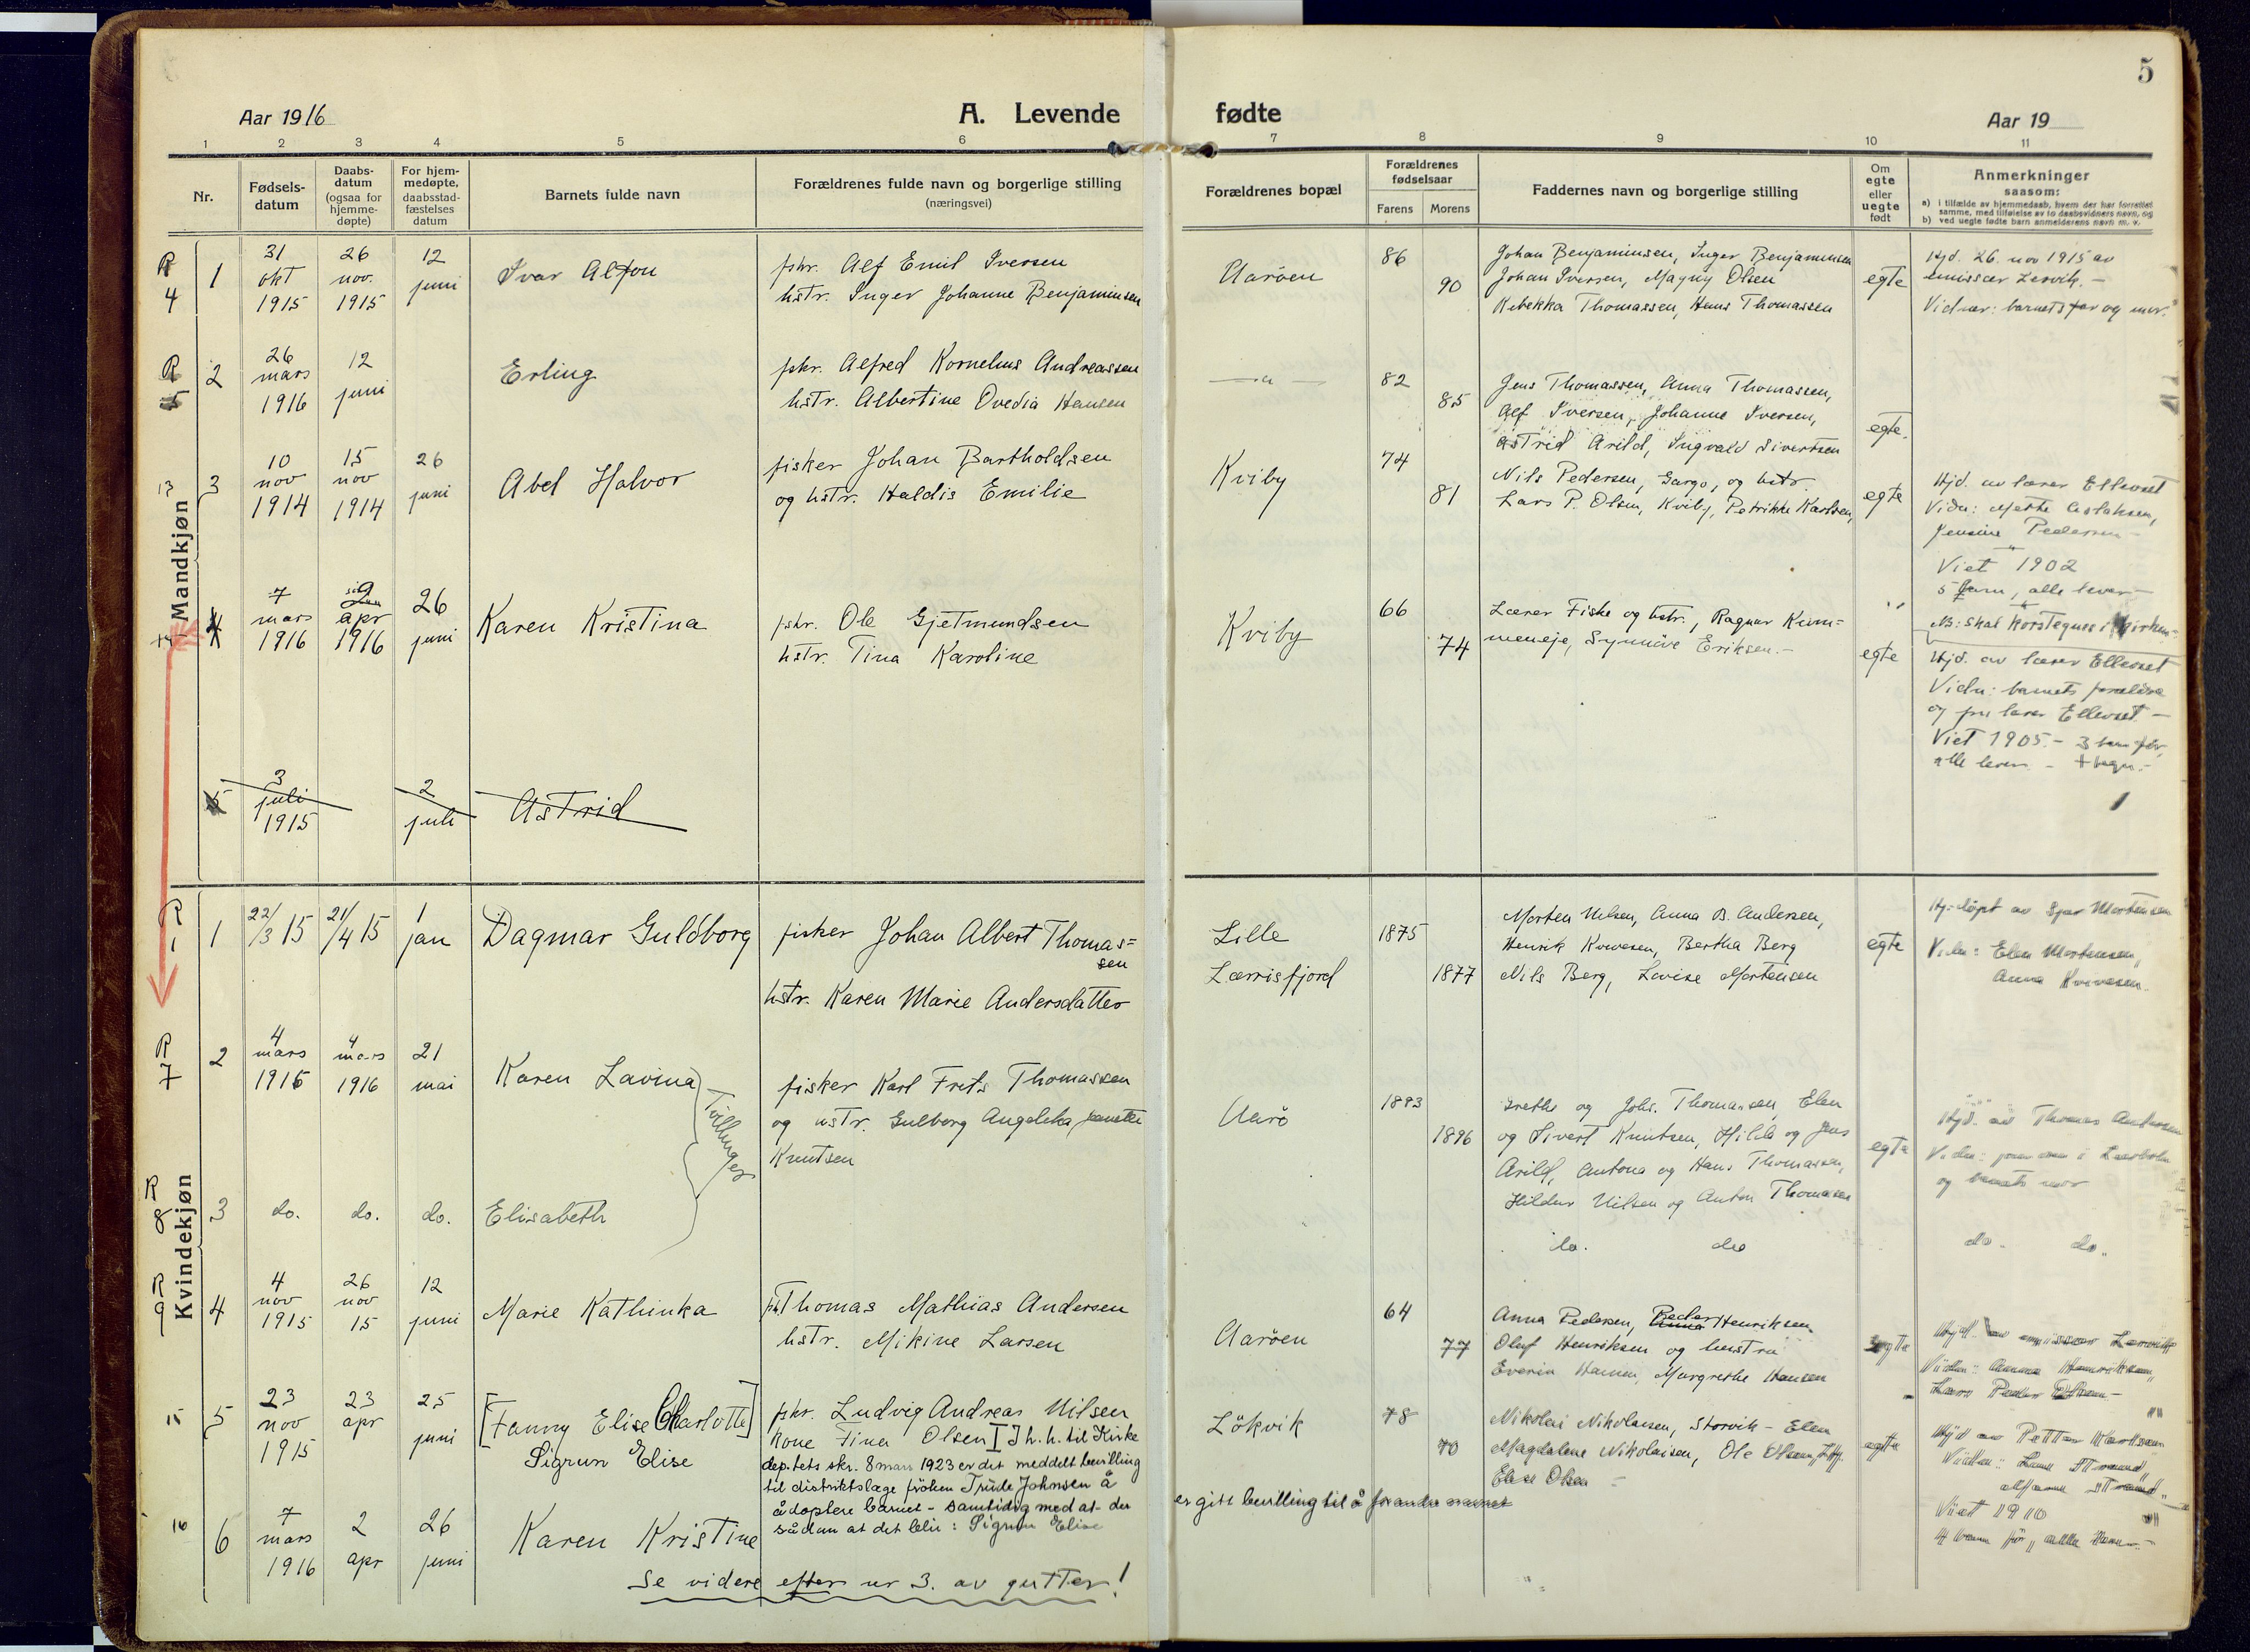 5
Aar 1916
A. Levende fødte
Aar 19
1 2 3 4 5 6 7 8 9 10 11
Nr.
Fødsels-
datum
Daabs-
datum
(ogsaa for
hjemme-
døpte)
For hjem-
medøpte,
daabsstad-
fæstelses
datum
Barnets fulde navn
Forældrenes fulde navn og borgerlige stilling
(næringsvei)
Forældrenes bopæl
Forældrenes
fødselsaar
Farens Morens
Faddernes navn og borgerlige stilling
Om
egte
eller
uegte
født
Anmerkninger
saasom:
a) i tilfælde av hjemmedaab, hvem der har forrettet
samme, med tilføielse av to daabsvidners navn, og
b) ved uegte fødte barn anmelderens navn m. v.
Mandkjøn
R
4
1
31
okt
1915
26
nov.
1915
12
juni
Ivar Alfon
fskr. Alf Emil Iversen
hstr. Inger Johanne Benjaminsen
Aarøen
86
90
Johan Benjaminsen, Inger Benjaminsen
Johan Iversen, Magny Olsen
Rebekka Thomassen, Hans Thomassen
egte
Hjd. 26. nov 1915 av
emissær Lervik. –
Vidner: barnets far og mor.
R
5
2
26
mars
1916
12
juni
Erling
fskr. Alfred Kornelius Andreassen
hstr. Albertine Ovedia Hansen
— " —
82
85
Jens Thomassen, Anna Thomassen,
Alf Iversen, Johanne Iversen,
Astrid Arild, Ingvald Sivertsen
egte.
13
3
10
nov
1914
15
nov
1914
26
juni
Abel Halvor
fisker Johan Bartholdsen
og hstr. Haldis Emilie
Kviby
74
81
Nils Pedersen, Gargo, og hstr.
Lars P. Olsen, Kviby, Petrikke Karlsen,
egte
Hjd. av lærer Ellevset
Vidn: Mette Aslaksen,
Jensine Pedersen –
Viet 1902
5 barn, alle lever –
NB: skal korstegnes i kirken
4
7
mars
1916
2
apr
1916
26
juni
Karen Kristina
fskr. Ole Gjetmundsen
hstr. Tina Karoline
Kviby
66
74
Lærer Fiske og hstr., Ragnar Kum-
meneje, Synnöve Eriksen. –
egte
Hjd. av lærer Ellevset
Vidn: barnets foreldre
og fru lærer Ellevset –
Viet 1905. – 3 barn før,
alle lever –
5
3
juli
1915
2
juli
Astrid
Kvindekjøn
R
1
1
22/3 15
21/4 15
1
jan
Dagmar Guldborg
fisker Johan Albert Thomas=
sen
hstr. Karen Marie Andersdatter
Lille
Lærrisfjord
1875
1877
Morten Nilsen, Anna B. Andersen,
Henrik Kvivesen, Bertha Berg
Nils Berg, Lovise Mortensen
egte
Hj. døpt av Mortensen
Vidn: Elen Mortensen,
Anna Kvivesen.
R
7
2
4
mars
1916
4
mars
1916
21
mai
Karen Lavina
Tvillinger
fisker Karl Frits Thomassen
og hstr. Gulborg Angelika Jeanette
Knutsen
Aarö
1893
1896
Grethe og Johs. Thomassen, Elen
og Sivert Knutsen, Hilda og Jens
Arild, Antona og Hans Thomassen,
Hildur Nilsen og Anton Thomassen
egte
Hjd. av Thomas Andersen
og barnets mor
R
8
3
do. do. do.
Elisabeth
do. do
do. do.
R
9
4
4
nov
1915
26
nov
15
12
juni
Marie Kathinka
fsk. Thomas Mathias Andersen
hstr. Mikine Larsen
Aarøen
64
77
Anna Pedersen, Peder Henriksen
Oluf Henriksen og hustru
Everin Hansen, Margrethe Hansen
egte
Hjd. av emissær Lervik
Vidn: Anna Henriksen,
15
5
23
nov
1915
23
apr
25
juni
[Fanny Elise Charlotte]
Sigrun Elise
fskr. Ludvig Andreas Nilsen
kone Tina Olsen I h. h. til Kirke
dep.tets skr. 8 mars 1923 er det meddelt bevilling
til distriktslæge frøken Trude Johnsen å
adoptere barnet – samtidig med at der
er gitt bevilling til å forandre navnet
sådan at det blir: Sigrun Elise
Lökvik
78
70
Nikolai Nikolaisen, Storvik – Elen
Magdalene Nikolaisen, Ole Olsen,
Elise Olsen –
egte
Hjd av Petter
Viet 1910
16
6
7
mars
1916
2
apr
26
juni
Karen Kristine
Se videre efter nr 3. av gutter!